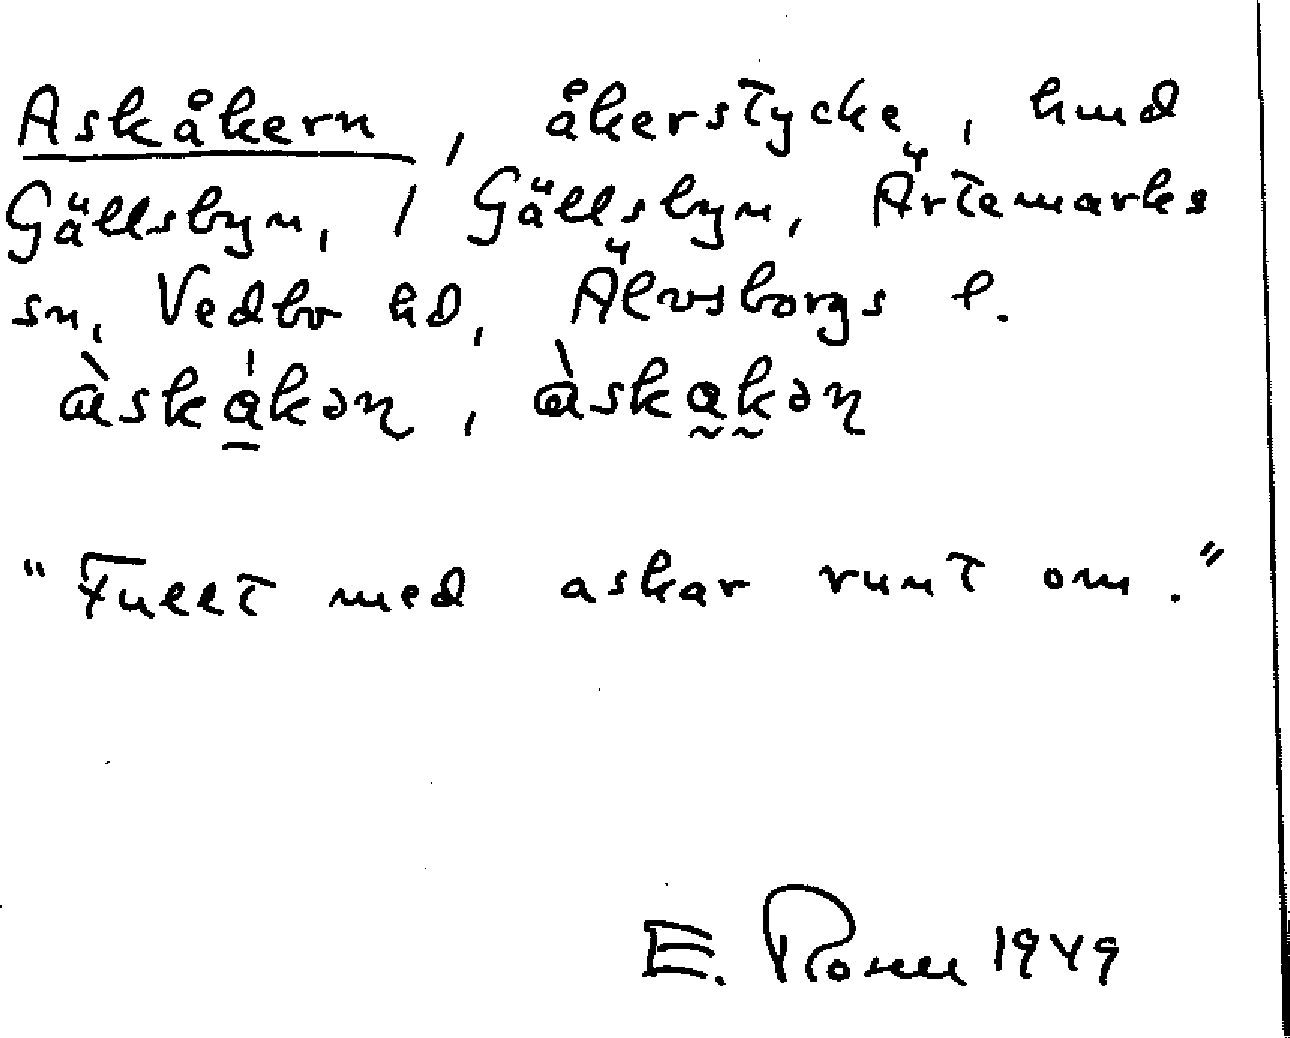 Askåkern, åkerstycke, hmd
Gällsbyn, / Gällsbyn, Ärtemarks
sn, Vedbo hd, Älvsborgs l.
"Fullt med askar runt om."
E. 1949